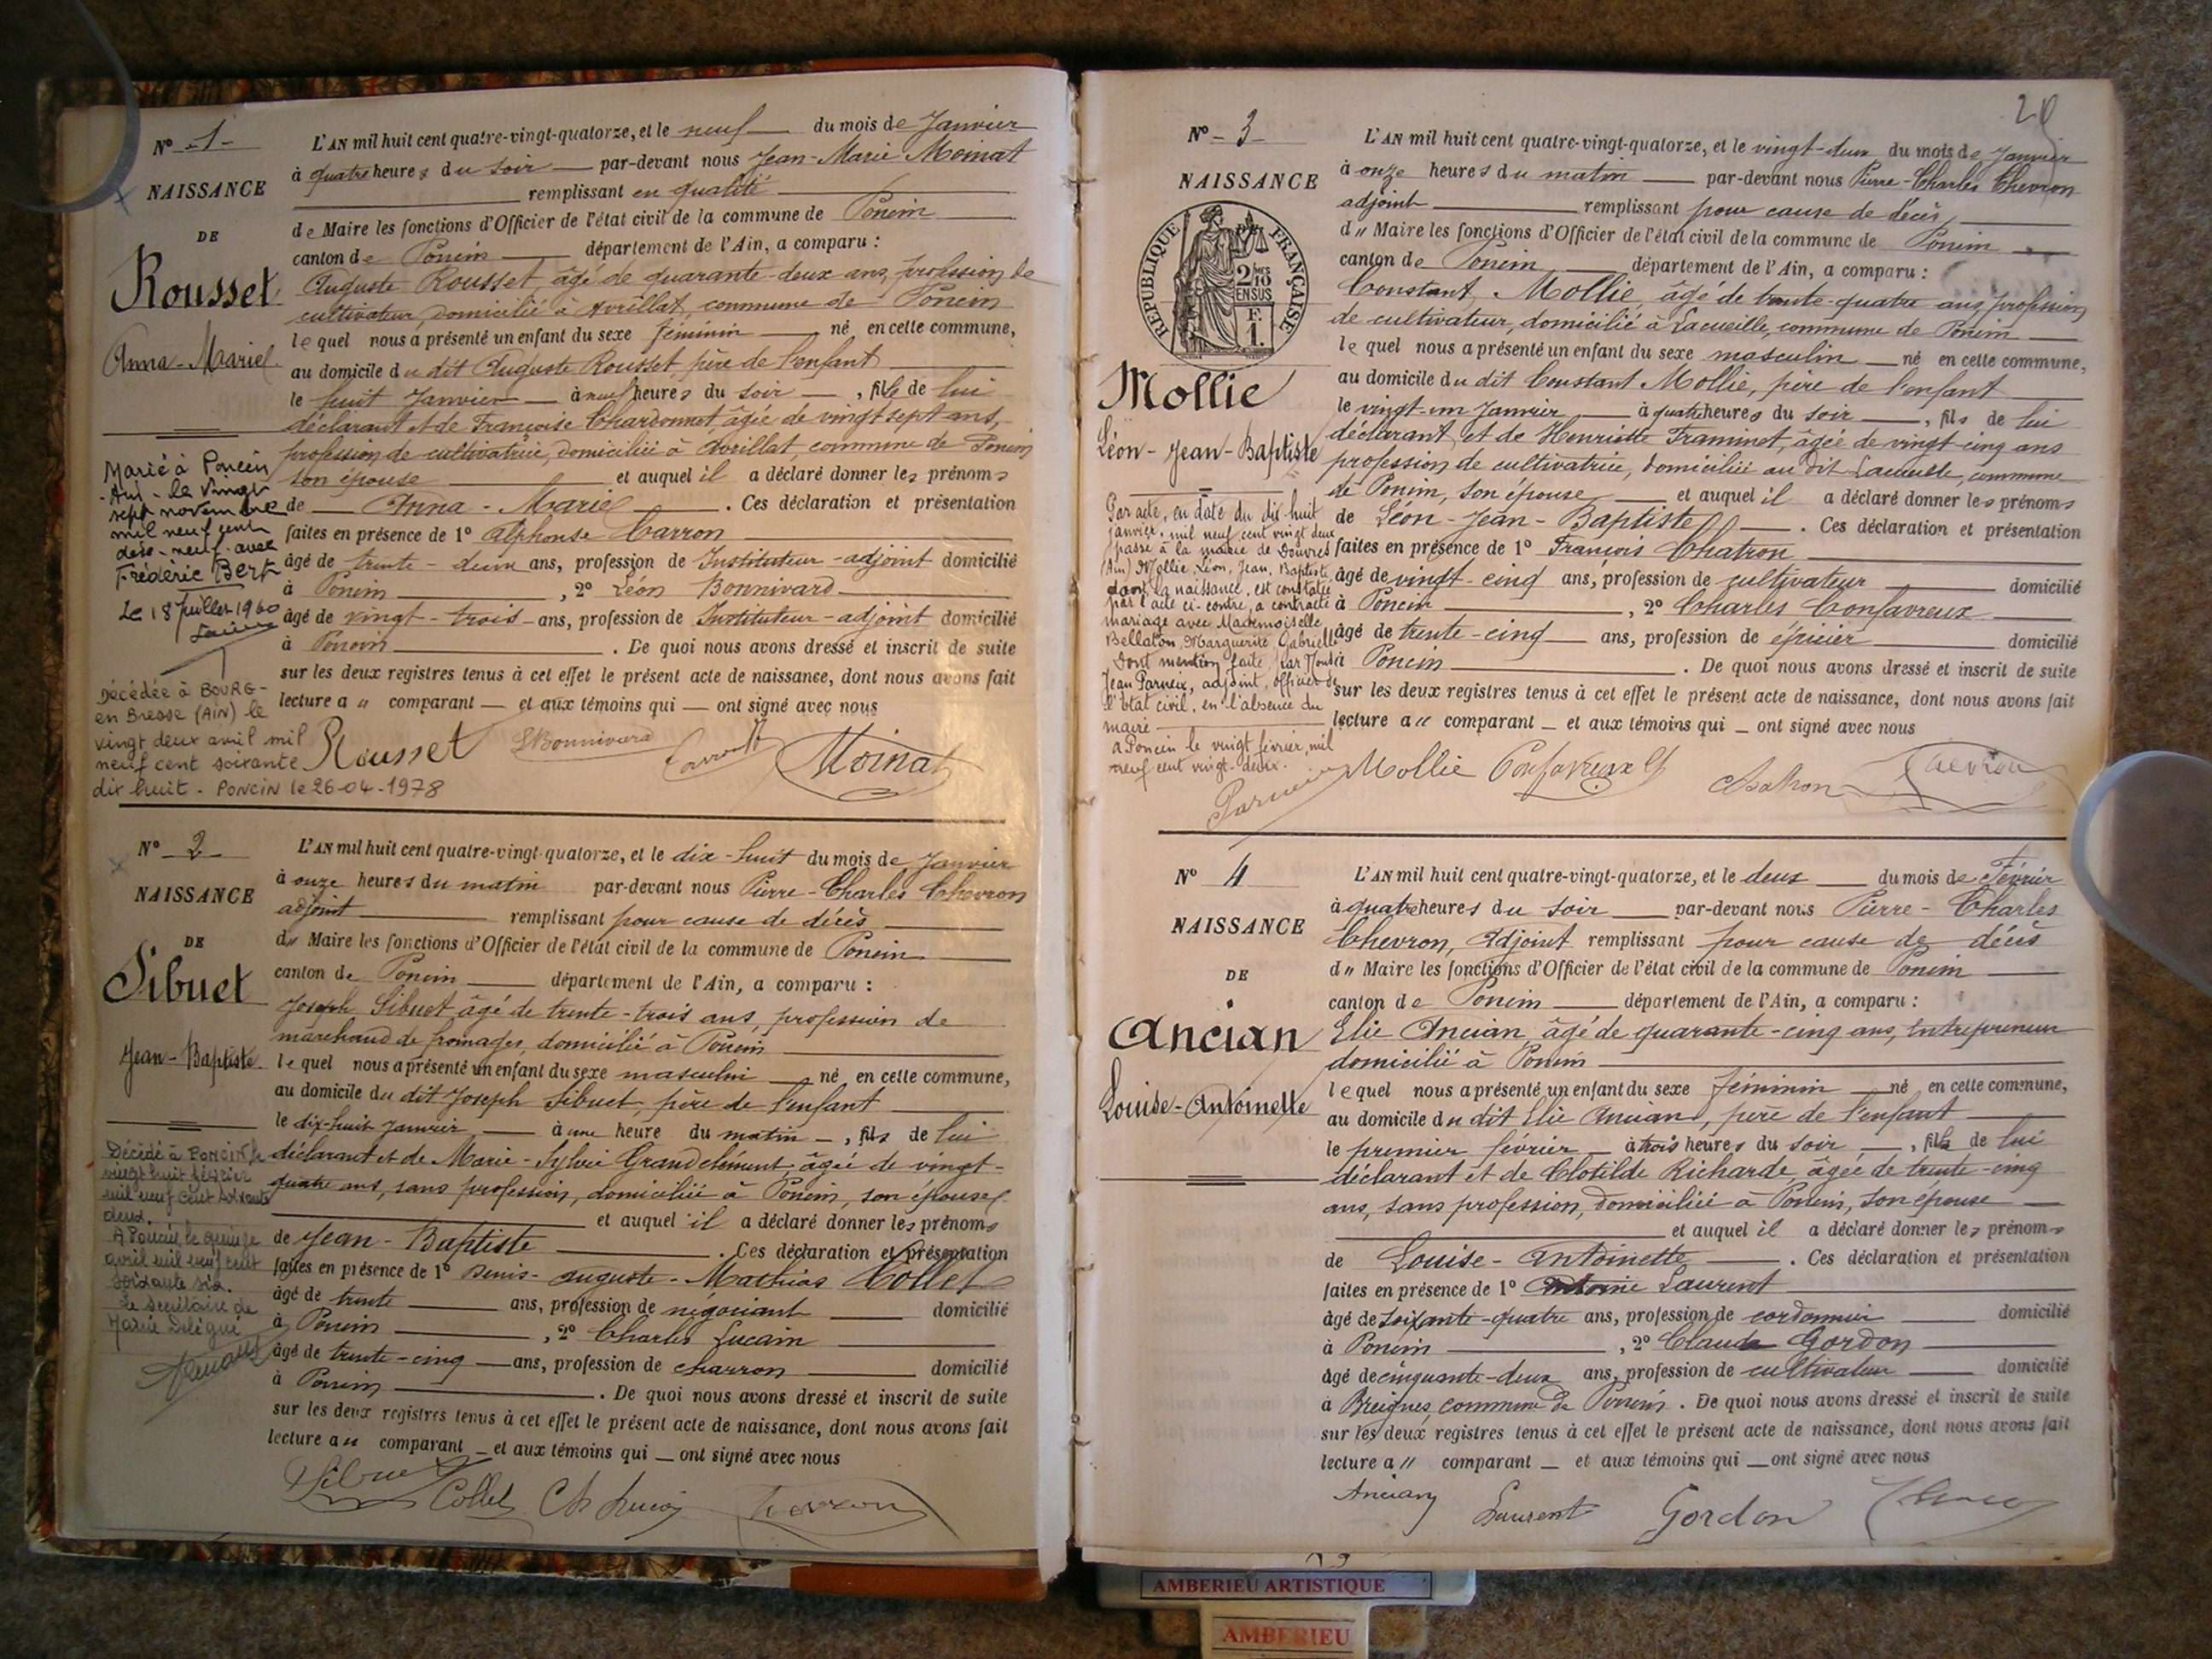 Nº 1
NAISSANCE
DE
Rousset
Anna-Marie
Marié à Poncin
Ain - le vingt
sept novembre
mil neuf cent
dix-neuf avec
Frédéric Bert
Le 18 Juillet 1960
Décédée à BOURG-
en Bresse (AIN) le
vingt deux avril mil
neuf cent soixante
dix huit - PONCIN le 26-04-1978
L'AN mil huit cent quatre-vingt-quatorze, et le neuf du mois de Janvier
à quatre heures du soir par-devant nous Jean-Marie Moinat
remplissant en qualité
de Maire les fonctions d'Officier de l'état civil de la commune de Poncin
canton de Poncin département de l'Ain, a comparu :
Auguste Rousset, âgé de quarante-deux ans, profession de
cultivateur, domicilié à Avrillat, commune de Poncin
lequel nous a présenté un enfant du sexe féminin né en cette commune,
au domicile du dit Auguste Rousset père de l'enfant
le huit Janvier à neuf heures du soir, fille de lui
déclarant et de Françoise Chardonnet âgée de vingt sept ans,
profession de cultivatrice, domiciliée à Avrillat, commune de Poncin
son épouse et auquel il a déclaré donner les prénoms
de Anna-Marie. Ces déclaration et présentation
faites en présence de 1º Alphonse Carron
âgé de trente-deux ans, profession de Instituteur-adjoint domicilié
à Poncin, 2º Léon Bonnivard
âgé de vingt-trois ans, profession de Instituteur-adjoint domicilié
à Poncin. De quoi nous avons dressé et inscrit de suite
sur les deux registres tenus à cet effet le présent acte de naissance, dont nous avons fait
lecture a " comparant et aux témoins qui ont signé avec nous
Rousset LBonnivard Carron Moinat
Nº 2
NAISSANCE
DE
Sibuet
Jean-Baptiste
Décédé à PONCIN le
vingt huit février
mil neuf cent soixante
deux.
A Poncin, le quinze
avril mil neuf cent
soixante six.
Le Secrétaire de
Mairie Délégué
L'AN mil huit cent quatre-vingt-quatorze, et le dix-huit du mois de Janvier
à onze heures du matin par-devant nous Pierre-Charles Chevron
adjoint remplissant pour cause de décès
du Maire les fonctions d'Officier de l'état civil de la commune de Poncin
canton de Poncin département de l'Ain, a comparu :
Joseph Sibuet âgé de trente-trois ans, profession de
marchand de fromages, domicilié à Poncin
lequel nous a présenté un enfant du sexe masculin né en cette commune,
au domicile du dit Joseph Sibuet, père de l'enfant
le dix-huit Janvier à une heure du matin, fils de lui
déclarant et de Marie-Sylvie Grandclément, âgée de vingt-
quatre ans, sans profession, domiciliée à Poncin, son épouse
et auquel il a déclaré donner les prénoms
de Jean-Baptiste. Ces déclaration et présentation
faites en présence de 1º Denis-Auguste-Mathias Collet
âgé de trente ans, profession de négociant domicilié
à Poncin, 2º Charles Lucain
âgé de trente-cinq ans, profession de charron domicilié
à Poncin. De quoi nous avons dressé et inscrit de suite
sur les deux registres tenus à cet effet le présent acte de naissance, dont nous avons fait
lecture au comparant et aux témoins qui ont signé avec nous
Sibuet Collet Chevron
20
Nº 3
NAISSANCE
RÉPUBLIQUE FRANÇAISE
Mollie
Léon-Jean-Baptiste
Par acte, en date du dix huit
janvier, mil neuf cent vingt deux
passé à la mairie de Douvres
(Ain) Mollie, Léon, Jean, Baptiste
dont la naissance, est constatée
par l'acte ci-contre, a contracté
mariage avec Mademoiselle
Bellaton, Marguerite Gabrielle
Dont mention faite, par Nous
Jean Parneix, adjoint, officier de
l'état civil, en l'absence du
maire
A Poncin le vingt février, mil
neuf cent vingt-deux.
Parneix
L'AN mil huit cent quatre-vingt-quatorze, et le vingt-deux du mois de Janvier
à onze heures du matin par-devant nous Pierre-Charles Chevron
adjoint remplissant pour cause de décès
d " Maire les fonctions d'Officier de l'état civil de la commune de Poncin
canton de Poncin département de l'Ain, a comparu :
Constant Mollie, âgé de trente-quatre ans, profession
de cultivateur, domicilié à Lacueille, commune de Poncin
lequel nous a présenté un enfant du sexe masculin né en cette commune,
au domicile du dit Constant Mollie, père de l'enfant
le vingt-un Janvier à quatre heures du soir, fils de lui
déclarant, et de Henriette Framinet, âgée de vingt-cinq ans
profession de cultivatrice, domiciliée au dit Lacueille, commune
de Poncin, son épouse et auquel il a déclaré donner les prénoms
de Léon-Jean-Baptiste. Ces déclaration et présentation
faites en présence de 1º François Chatron
âgé de vingt-cinq ans, profession de cultivateur domicilié
à Poncin, 2º Charles Confavreux
âgé de trente-cinq ans, profession de épicier domicilié
à Poncin. De quoi nous avons dressé et inscrit de suite
sur les deux registres tenus à cet effet le présent acte de naissance, dont nous avons fait
lecture a " comparant et aux témoins qui ont signé avec nous
Mollie Confavreux Chatron Chevron
Nº 4
NAISSANCE
DE
Ancian
Louise-Antoinette
L'AN mil huit cent quatre-vingt-quatorze, et le deux du mois de Février
à quatre heures du soir par-devant nous Pierre-Charles
Chevron, Adjoint remplissant pour cause de décès
d " Maire les fonctions d'Officier de l'état civil de la commune de Poncin
canton de Poncin département de l'Ain, a comparu :
Elie Ancian âgé de quarante-cinq ans, Entrepreneur
domicilié à Poncin
lequel nous a présenté un enfant du sexe féminin né en cette commune,
au domicile du dit Elie Ancian, père de l'enfant
le premier février à trois heures du soir, fille de lui
déclarant et de Clotilde Richarde, âgée de trente-cinq
ans, sans profession, domiciliée à Poncin, son épouse
et auquel il a déclaré donner les prénoms
de Louise-Antoinette. Ces déclaration et présentation
faites en présence de 1º Antoine Laurent
âgé de soixante-quatre ans, profession de cordonnier domicilié
à Poncin, 2º Claude Gordon
âgé de cinquante-deux ans, profession de cultivateur domicilié
à Breignes, commune de Poncin. De quoi nous avons dressé et inscrit de suite
sur les deux registres tenus à cet effet le présent acte de naissance, dont nous avons fait
lecture a " comparant et aux témoins qui ont signé avec nous
Ancian Laurent Gordon
AMBERIEU ARTISTIQUE
AMBERIEU